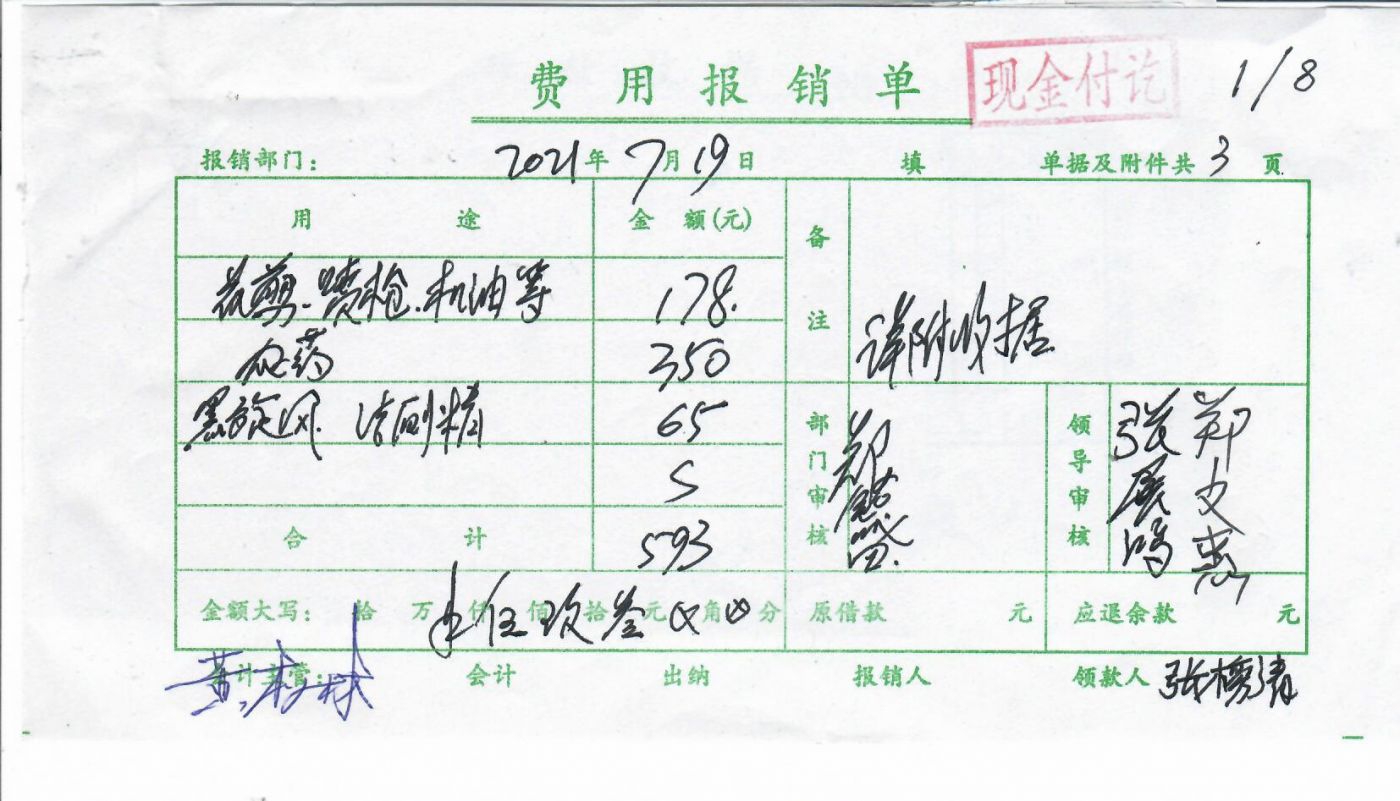 费用报销单 现金付讫 1/8
报销部门: 2021年7月19日 填 单据及附件共3页
用途 金额(元) 备注
花剪.喷枪.机油等 178.
农药 350
详附收据
黑旋风 65
部门审核 领导审核 张 郑
合计 593
金额大写: 拾 万 仟伍佰玖拾叁元⊗角⊗分 原借款 元 应退余款 元
会计主管: 会计 出纳 报销人 领款人 张